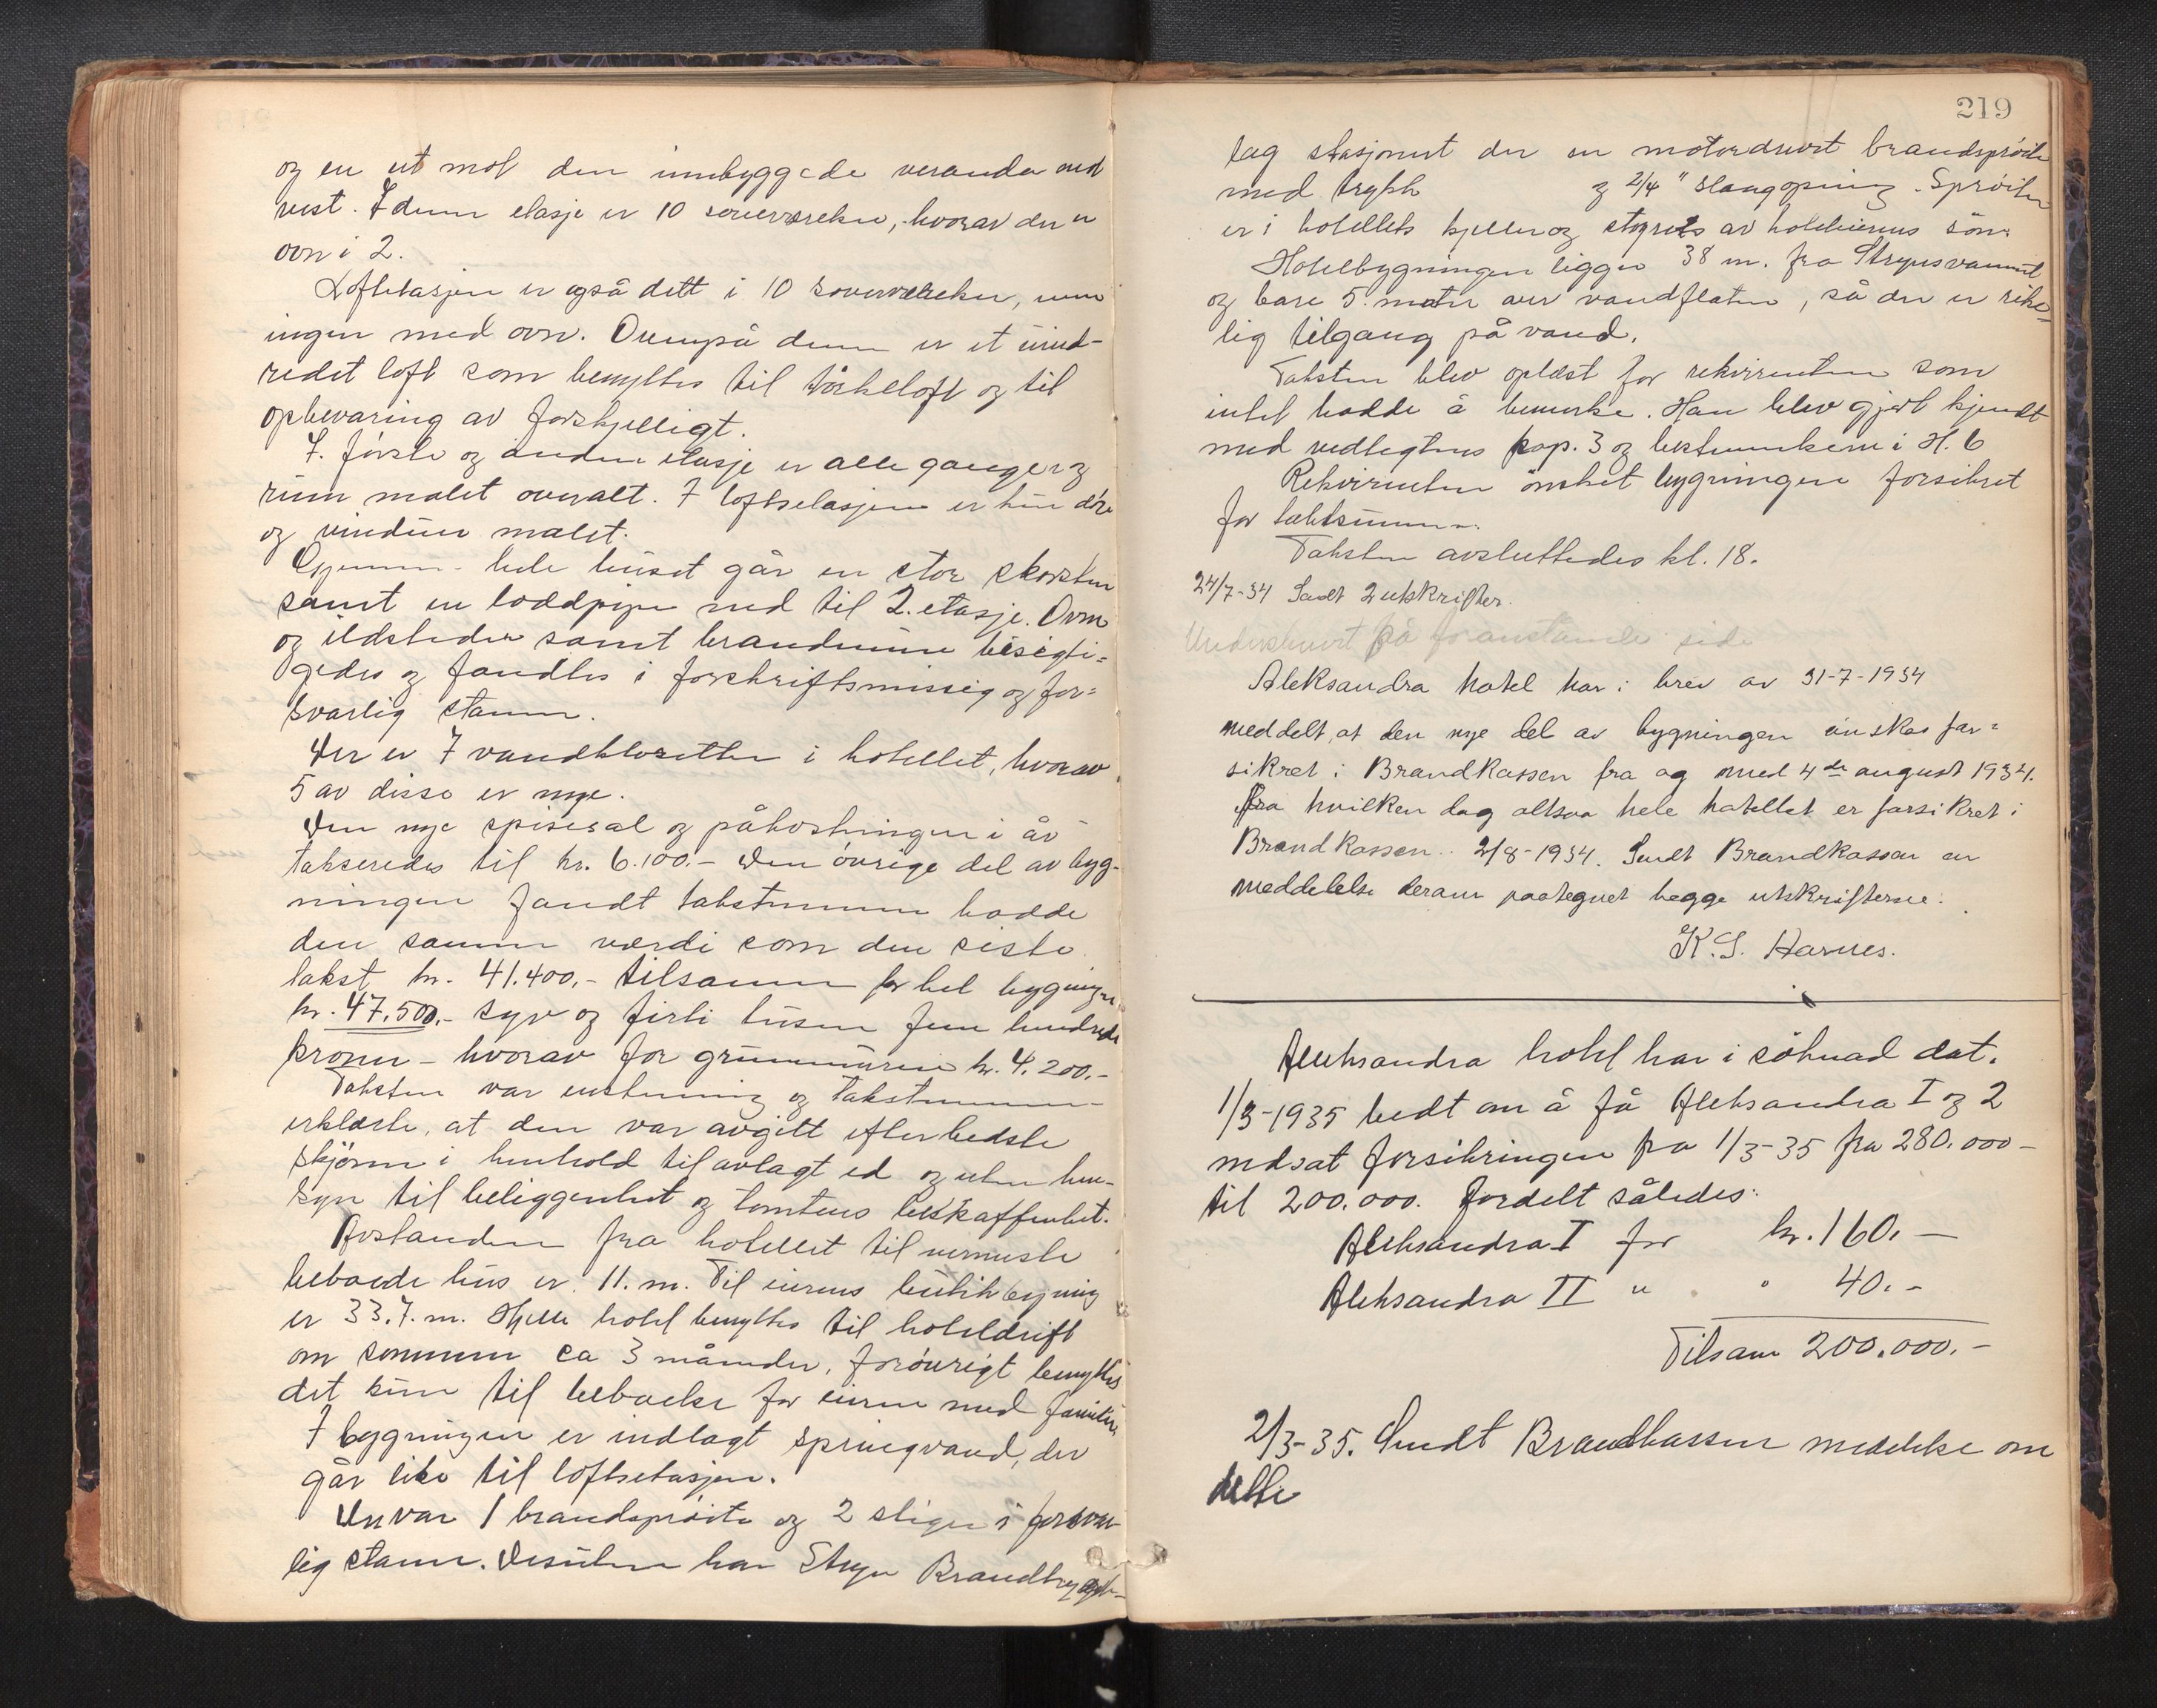 og en ut mot den innbyggede veranda mot
vest. I denne etasje er 10 soveværelser, hvorav der er
ovn i 2.
Loftetasjen er også delt i 10 soverværelser, men
ingen med ovn. Ovenpå denne er et uind-
redet loft som benyttes til tørkeloft og til
opbevaring av forskjelligt.
I første og anden etasje er alle ganger og
rum malet overalt. I loftsetasjen er kun dører
og vinduer malet.
Gjennem hele huset går en stor skorsten
samt en loddpipe ned til 2. etasje. Ovne
og ildsteder samt brandmure besigti=
gedes og fandtes i forskriftsmessig og for=
svarlig stann.
Der er 7 vandklosetter i hotellet, hvorav
5 av disse er nye.
Den nye spisesal og påkostningen i år
takseredes til kr. 6.100.- Den øvrige del av byg-
ningen fandt takstmennene hadde
den samme verdi som den siste
takst kr. 41.400.- tilsammen for hel bygningen
kr. 47.500.- syv og firti tusen fem hundrede
kroner - hvorav for grunnmuren kr. 4.200.-
Taksten var enstemmig og takstmennene
erklærte, at den var avgitt efter bedste
skjønn i henhold til avlagt ed og uten hen-
syn til beliggenhet og tomtens beskaffenhet.
Avstanden fra hotellet til nærmeste
beboede hus er 11. m. Til eierens butikbygning
er 33.7. m. Hjelle hotel benyttes til hoteldrift
om sommeren ca 3 måneder, forøvrigt benyttes
det kun til beboelse for eieren med familie.
I bygningen er indlagt springvand, der
går like til loftsetasjen.
Der var 1 brandsprøite og 2 stiger i forsvar-
lig stann. Desuten har Stryn Brandbygde-
219
lag stasjonert der en motordrevet brandsprøite
med trykk og 2/4" slangeopning. Sprøiten
er i hotellets kjeller og styres av hoteleierens sønn.
Hotelbygningen ligger 38 m. fra Strynsvannet
og bare 5. meter over vandflaten, så der er rike-
lig tilgang på vand.
Taksten blev oplæst for rekvirenten som
intet hadde å bemerke. Han blev gjort kjendt
med vedtegtenes kap. 3 og bestemmelsene i H. 6
Rekvirenten ønsket bygningen forsikret
for takstsummen.
Taksten avsluttedes kl. 18.
24/7-34 Sendt 2 utskrifter.
Underskrevet på foranstående side
Aleksandra hotel har i brev av 31-7-1934
meddelt, at den nye del av bygningen ønskes for=
sikret i Brandkassen fra og med 4de august 1934.
fra hvilken dag altsaa hele hotellet er forsikret i
Brandkassen. 2/8-1934. Sendt Brandkassen en
meddelelse derom paategnet begge utskrifterne.
K. S. Harnes.
Aleksandra hotel har i søknad dat.
1/3-1935 bedt om å få Aleksandra I og 2
nedsat forsikringen fra 1/3-35 fra 280.000-
til 200.000. Fordelt således:
Aleksandra I for kr. 160.-
Aleksandra II " " 40.-
Tilsam 200.000.-
2/3-35. Sendt Brandkassen meddelelse om
dette